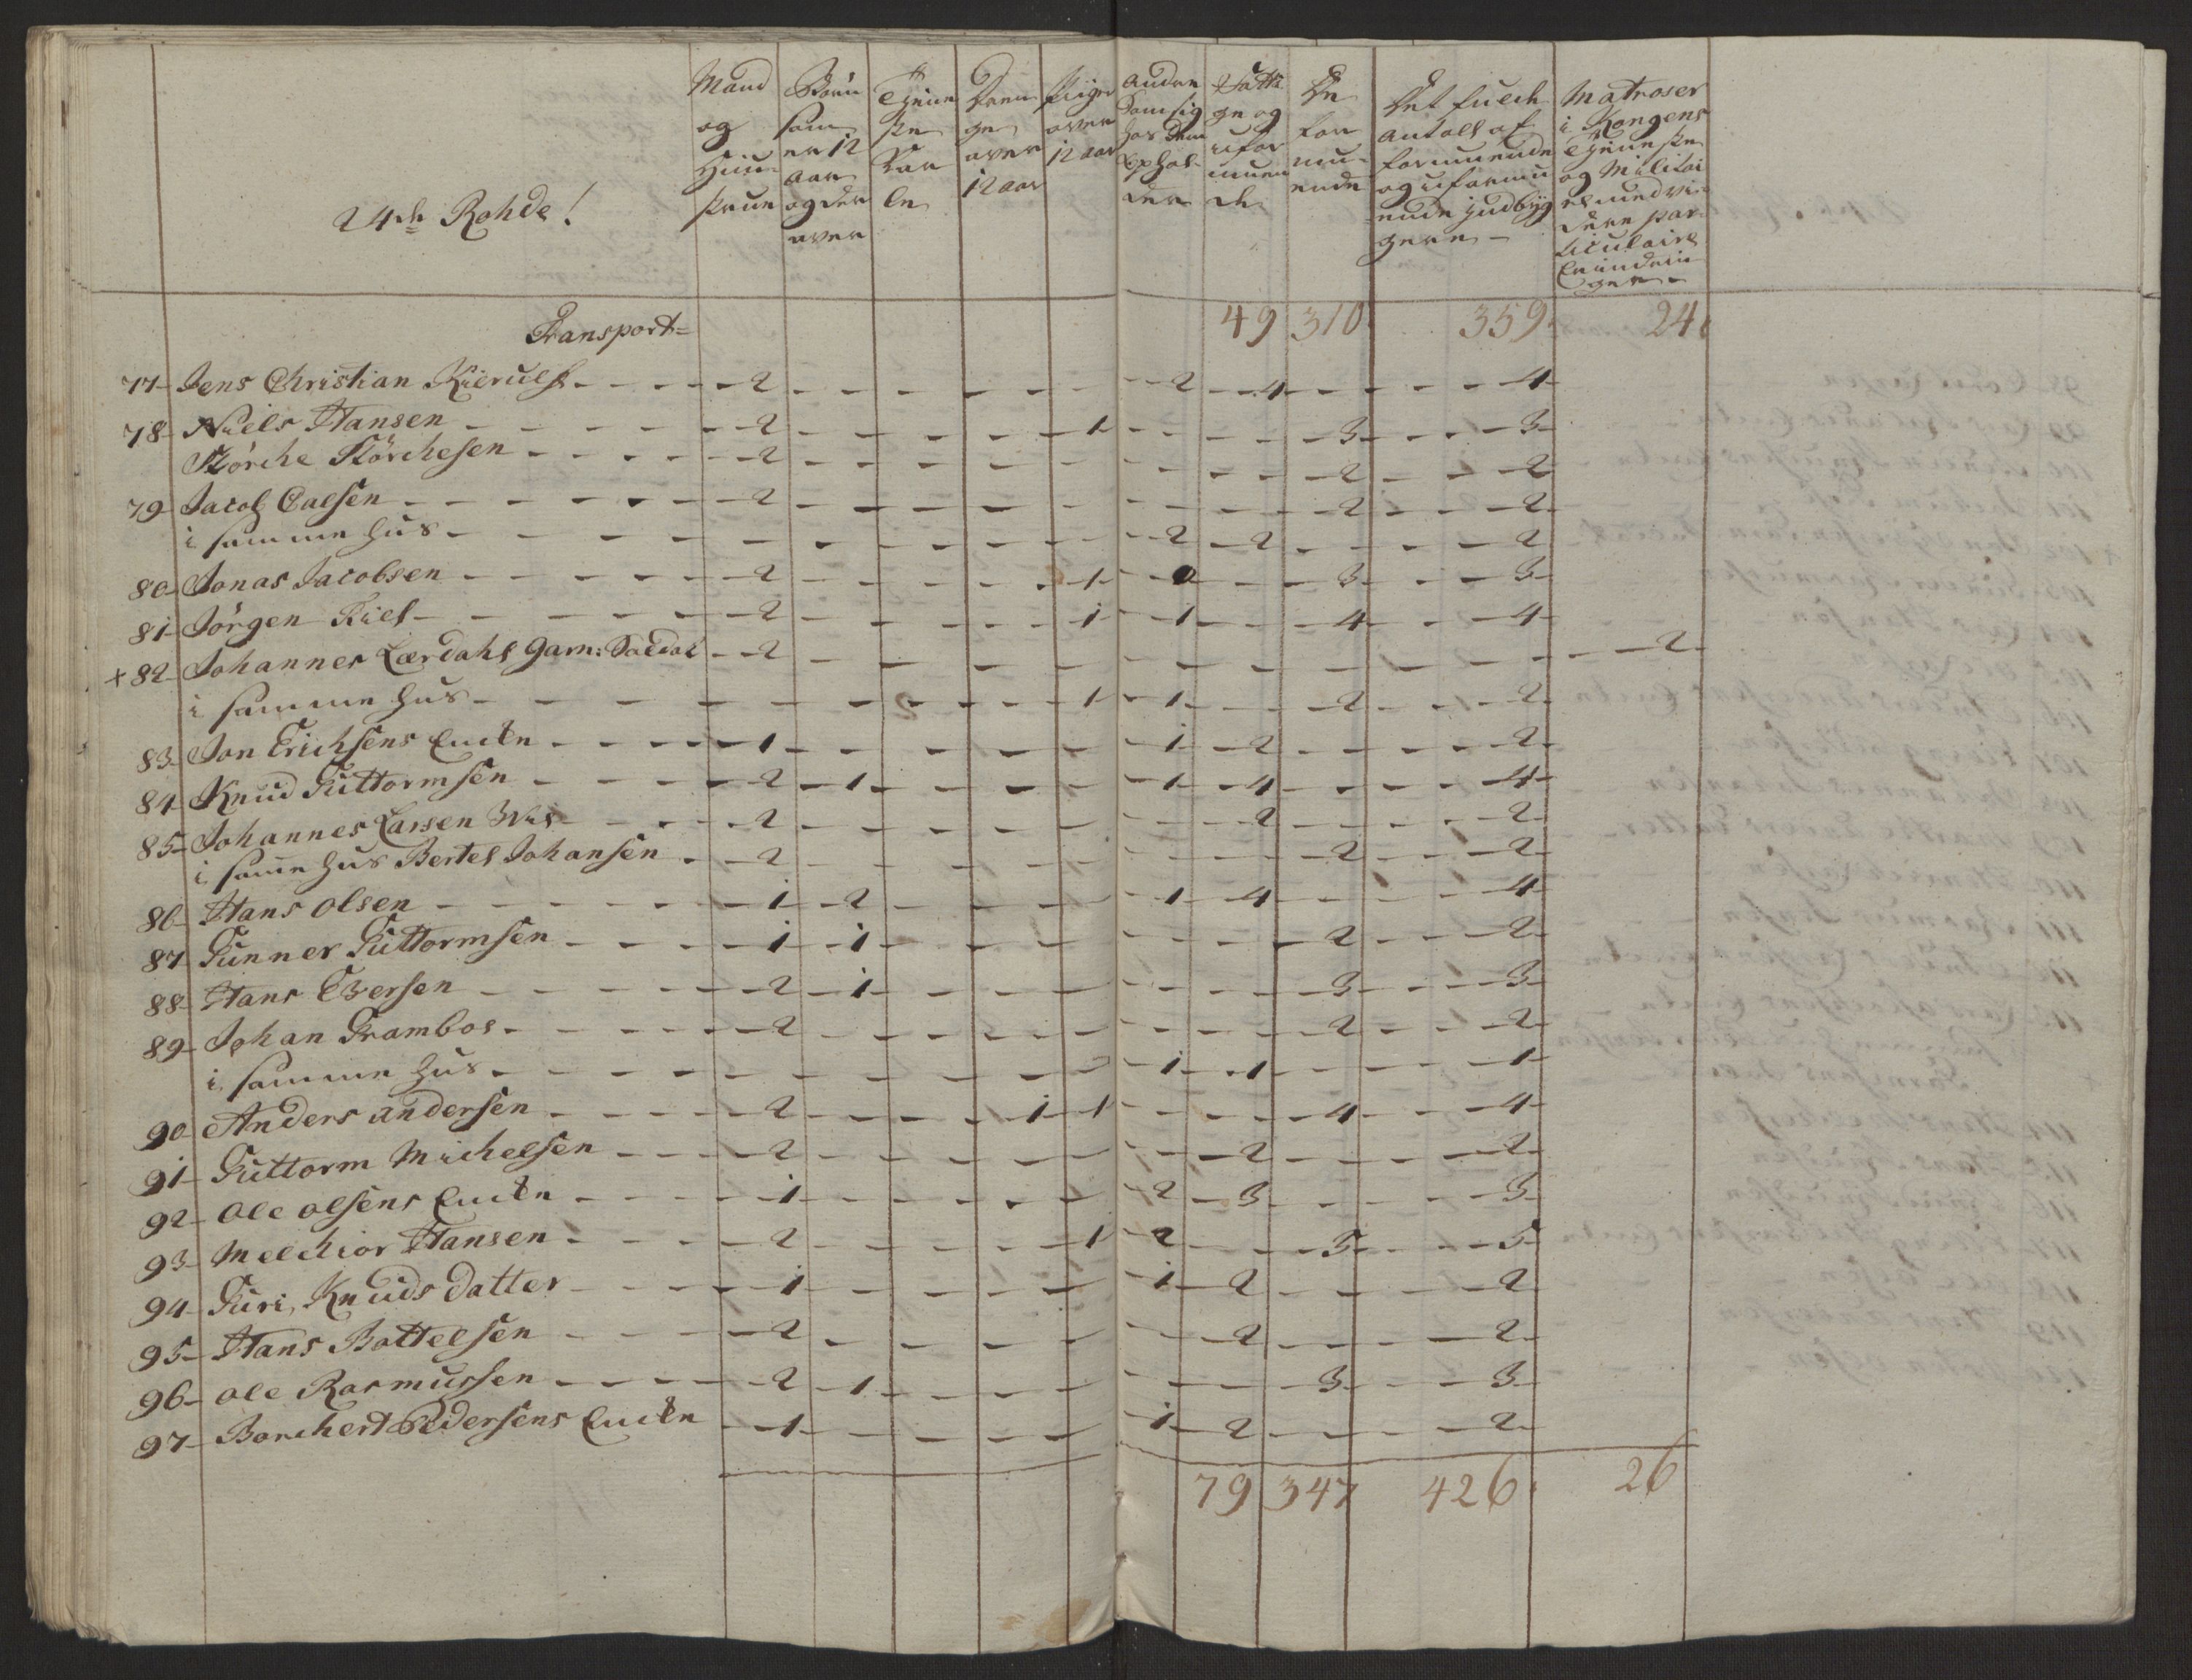 24de Rohde!
Mand og Hüu- strue
Börn som er 12 aar og der over
Tjene ste Kar le
Dren ge over 12 aar
Piiger over 12 aar
Andre som sig hos dem ophol- der
Fatti ge og ufor muen de
De for mu- ende
Det fulde antall af formuende og uformu ende jndbyg gere -
Matroser i Kongens Tjeneste og Militai re med vi- dere par- ticulaire
Transport = 49 310 359 24
77- Jens Christian Kierulf - 2 - 2 - 4 - 4
78- Niels Hansen - 2 - 1 - 3 - 3
Störche Störchesen - 2 - 2 - 2
79- Jacob Calsen - 2 - 2 - 2
i samme hus - 2 - 2 - 2
80- Jonas Jacobsen - 2 - 1 - 3 - 3
81- Jörgen Kiel - 2 - 1 - 1 - 4 - 4
+ 82- Johannes Lærdahl Garn: Soldat - 2 - 2
i samme hus - 1 - 1 - 2 - 2
83- Jon Erichsens Encke - 1 - 1 - 2 - 2
84- Knud Guttormsen - 2 - 1 - 1 - 4 - 4
85- Johannes Larsen Wiis - 2 - 2 - 2
i same hus Bertel Johansen - 2 - 2 - 2
86- Hans olsen - 1 - 2 - 1 - 4 - 4
87- Gunner Guttormsen - 1 - 1 - 2 - 2
88- Hans Eversen - 2 - 1 - 3 - 3
89- Johan Grambos - 2 - 2 - 2
i samme hus - 1 - 1 - 1
90- Anders andersen - 2 - 1 - 1 - 4 - 4
91- Guttorm Michelsen - 2 - 2 - 2
92- ole olsens Encke - 1 - 2 - 3 - 3
93- Melchior Hansen - 2 - 1 - 2 - 5 - 5
94- Guri Knuds datter - 1 - 1 - 2 - 2
95- Hans Bottelsen - 2 - 2 - 2
96- ole Rasmussen - 2 - 1 - 3 - 3
97- Borchert Pedersens Encke - 1 - 1 - 2 - 2
79 347 426 26